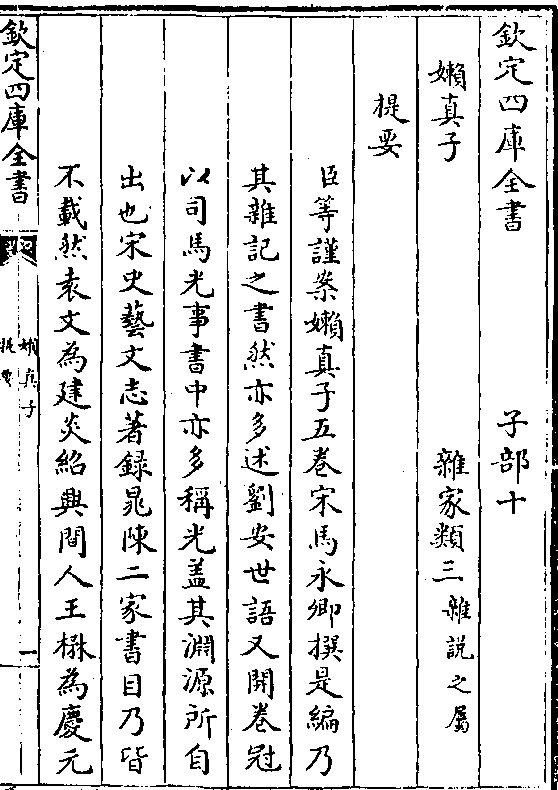 欽定四庫全書 子部十
嬾真子 雜家類三雜説之屬
提要
臣等謹案嬾真子五卷宋馬永卿撰是編乃
其雜記之書然亦多述劉安世語又開卷冠
以司馬光事書中亦多稱光葢其淵源所自
出也宋史藝文志著録晁陳二家書目乃皆
不載然袁文為建炎紹興間人王楙為慶元
欽定四庫全書
嬾真子
提要
一